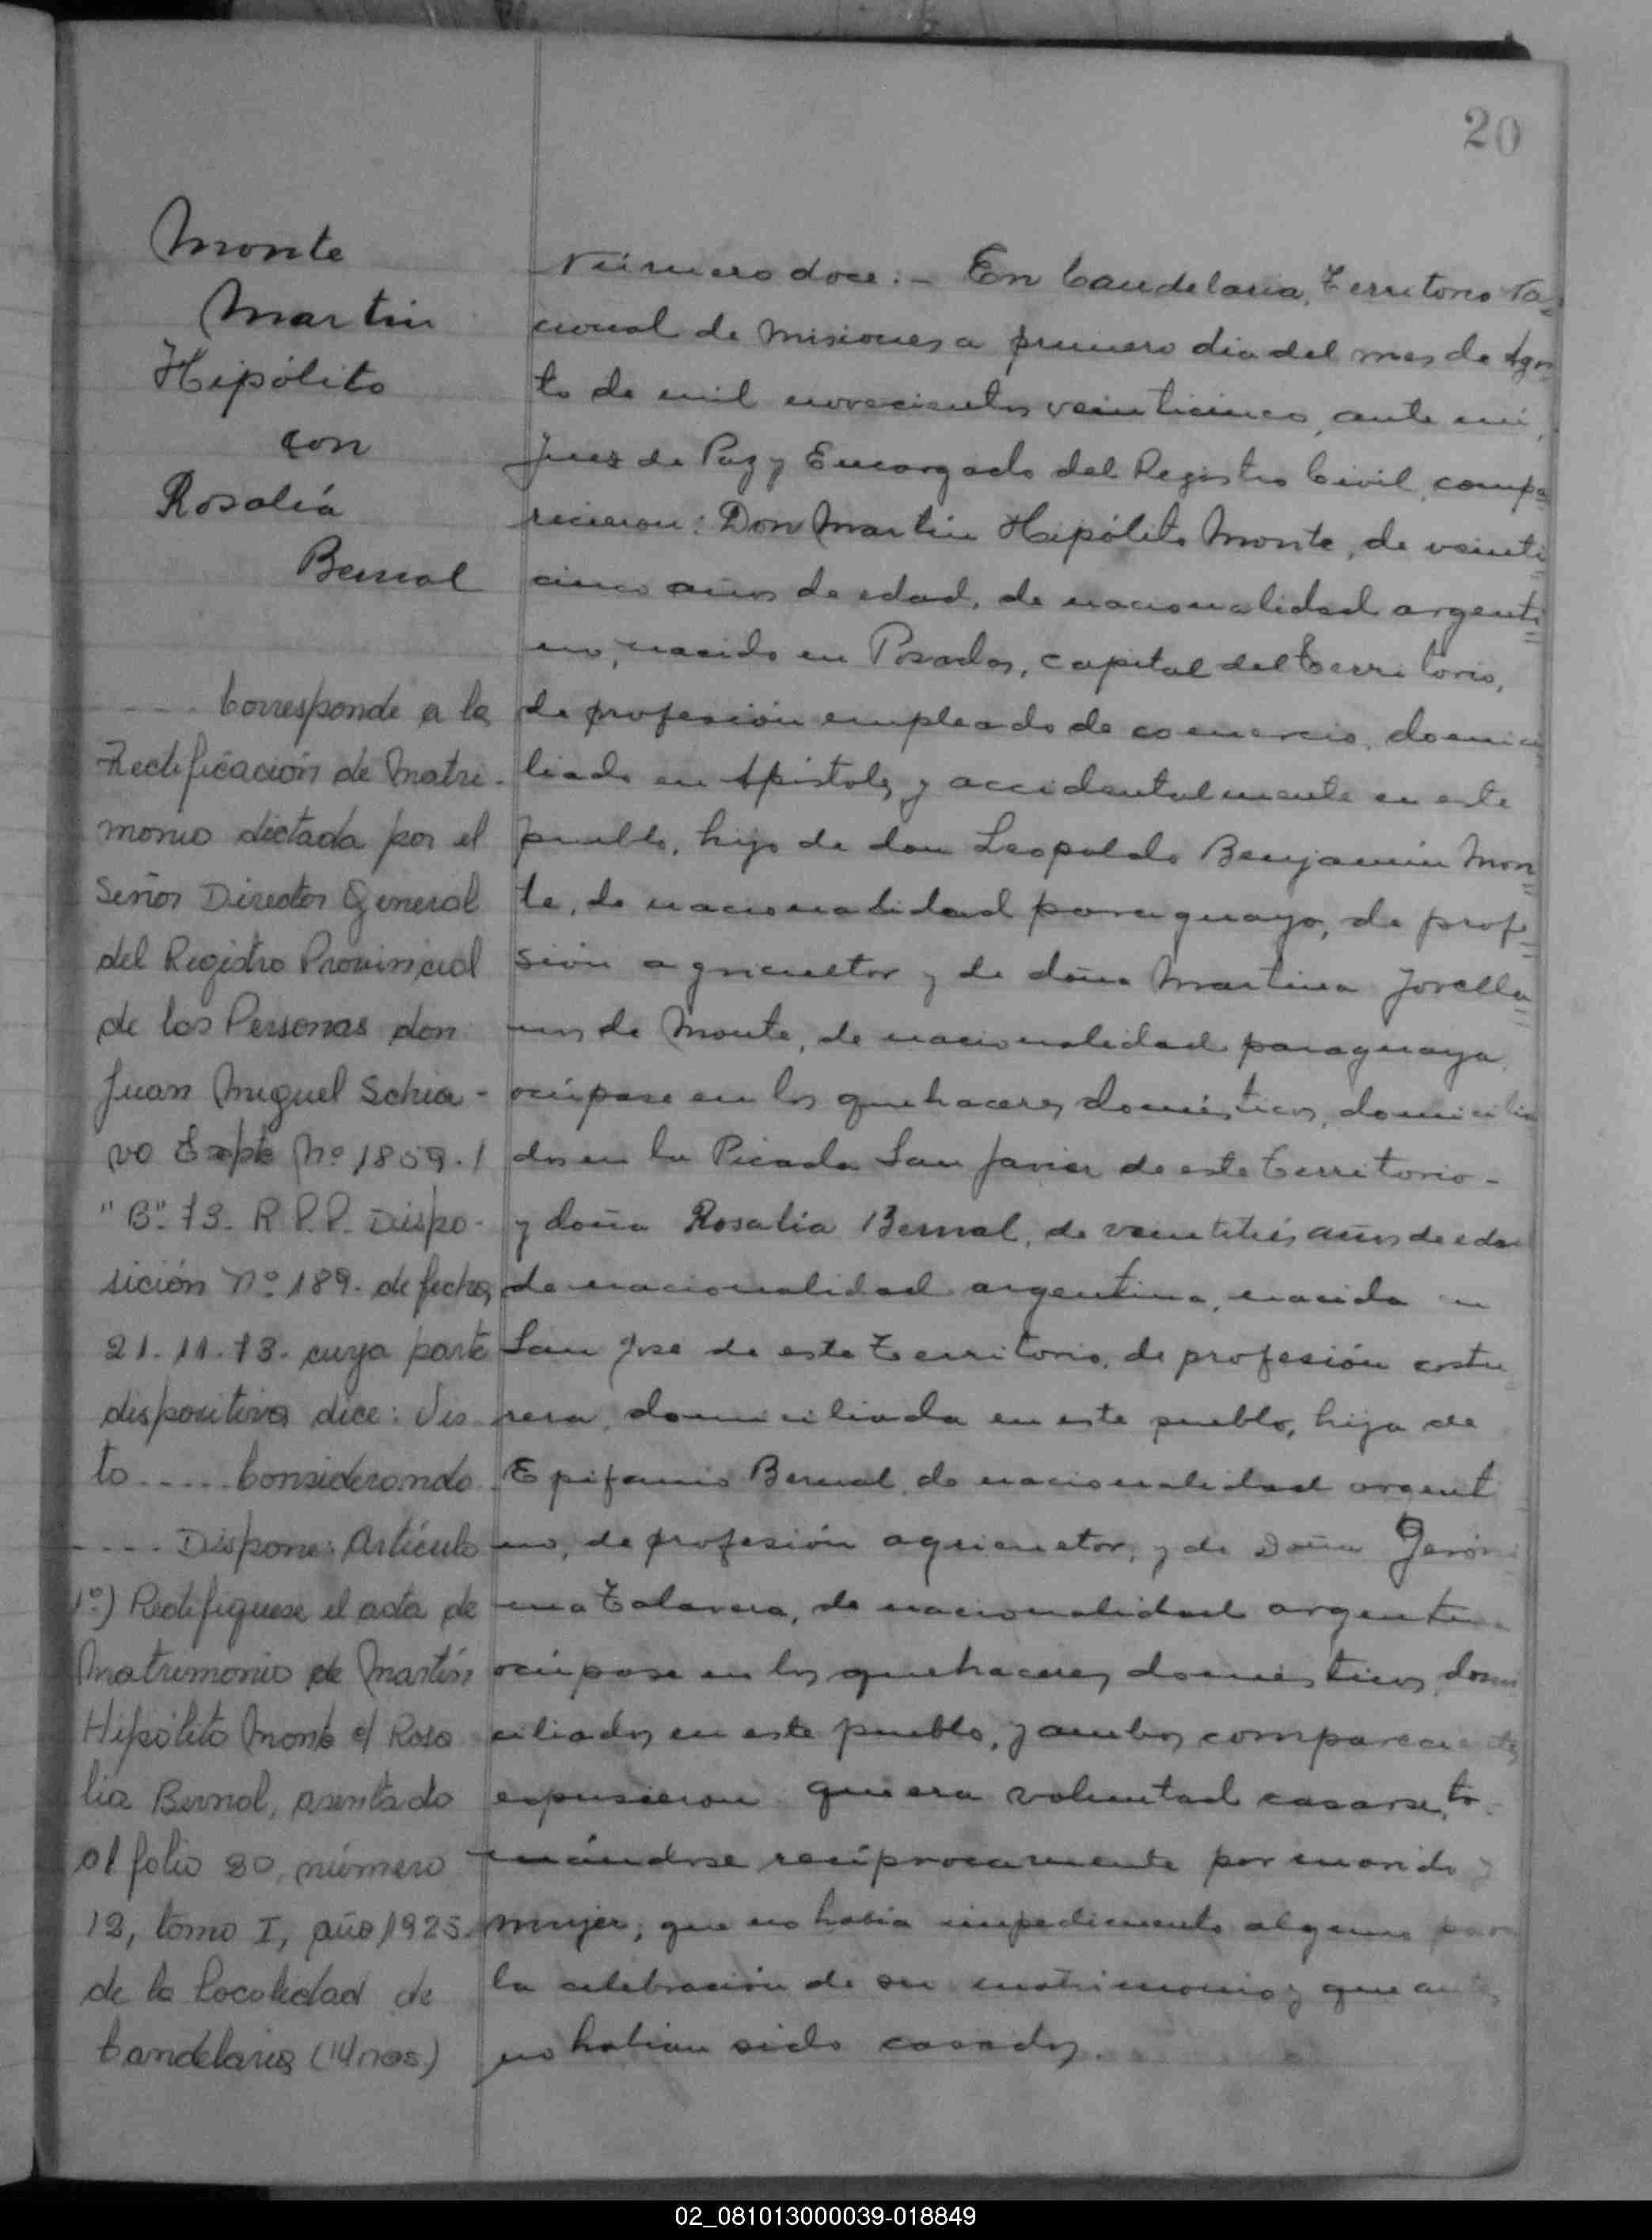 20
Monte
Martin
Hipólito
con
Rosalía
Bernal
Corresponde a la
Rectificación de Matri-
monio dictada por el
Señor Director General
del Registro Provincial
de las Personas don
Juan Miguel Schia-
vo Expte Nº 1859.1
"B". 73. R.P.P. Dispo-
sición Nº 189. de fecha
21.11.73. cuya parte
dispositiva dice: Vis-
to ..... Considerando
.... Dispone: Artículo
1º) Rectifiquese el acta de
Matrimonio de Martín
Hipólito Monte c/ Rosa
lia Bernal, asentado
al folio 20, número
12, tomo I, año 1925.
de la localidad de
Candelaria (Mnes)
Número doce:- En Candelaria, Territorio Na=
cional de Misiones a primero dia del mes de Agos=
to de mil novecientos veinticinco, ante mi,
Juez de Paz y Encargado del Registro Civil, compa=
recieron: Don Martin Hipólito Monte, de veinti=
cinco años de edad, de nacionalidad argenti=
no, nacido en Posadas, capital del Territorio,
de profesión empleado de comercio, domici
liado en Apóstoles y accidentalmente en este
pueblo, hijo de don Leopoldo Benjamin Mon=
te, de nacionalidad paraguayo, de profe=
sión agricultor y de doña Martina Jovella=
nos de Monte, de nacionalidad paraguaya,
ocúpase en los quehaceres domésticos, domicilia
dos en la Picada San Javier de este Territorio -
y doña Rosalía Bernal, de veintitrés años de edad
de nacionalidad argentina, nacida en
San José de este Territorio, de profesión costu
rera, domiciliada en este pueblo, hija de
Epifanio Bernal, de nacionalidad argenti
no, de profesión agricultor, y de Doña Geróni
ma Talavera, de nacionalidad argentina
ocúpase en los quehaceres domésticos, domi
ciliados en este pueblo, y ambos comparecientes
expusieron que era voluntad casarse, to-
mándose recíprocamente por marido y
mujer; que no había impedimento alguno para
la celebración de su matrimonio y que antes
no habian sido casados.
02_081013000039-018849